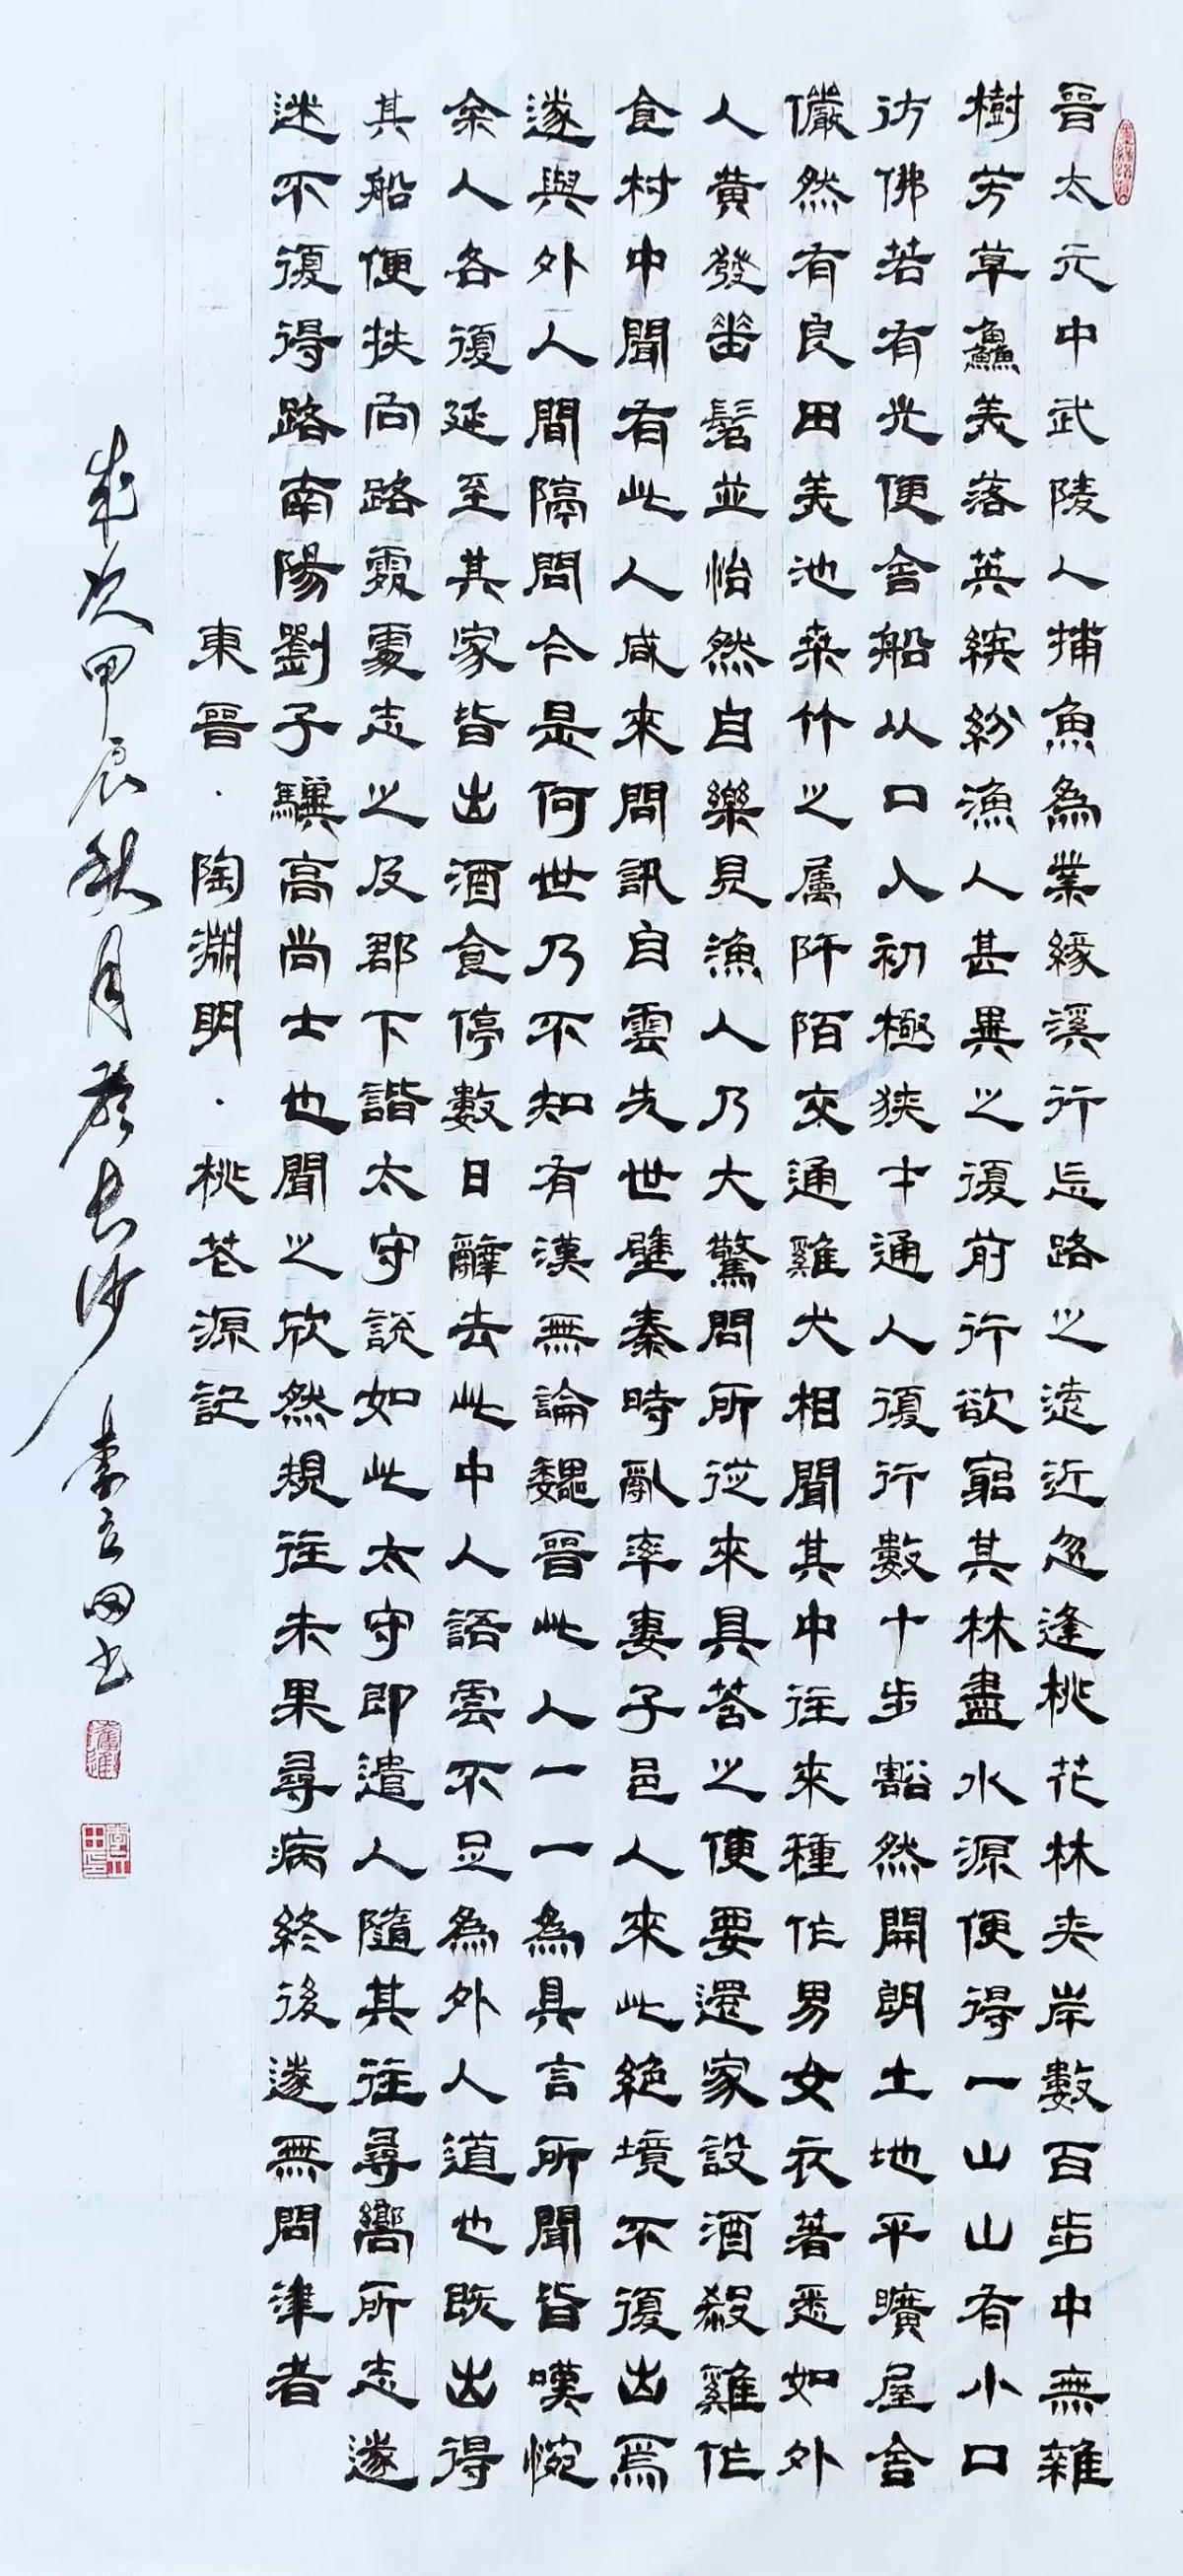 晉太元中武陵人捕魚為業緣溪行忘路之遠近忽逢桃花林夾岸數百步中無雜
樹芳草鱻美落英繽紛漁人甚異之復前行欲窮其林盡水源便得一山山有小口
彷佛若有光便舍船从口入初極狹才通人復行數十步豁然開朗土地平曠屋舍
儼然有良田美池桑竹之属阡陌交通雞犬相聞其中往來種作男女衣著悉如外
人黃發垂髫並怡然自樂見漁人乃大驚問所從來具答之便要還家設酒殺雞作
食村中聞有此人咸來問訊自雲先世避秦時亂率妻子邑人來此絕境不復出焉
遂與外人間隔問今是何世乃不知有漢無論魏晉此人一一為具言所聞皆嘆惋
余人各復延至其家皆出酒食停數日辭去此中人語雲不足為外人道也既出得
其船便扶向路處處志之及郡下詣太守說如此太守即遣人隨其往尋嚮所志遂
迷不復得路南陽劉子驥高尚士也聞之欣然規往未果尋病終後遂無問津者
東晉·陶淵明·桃花源記
歲次甲辰秋月於長沙 李立田書